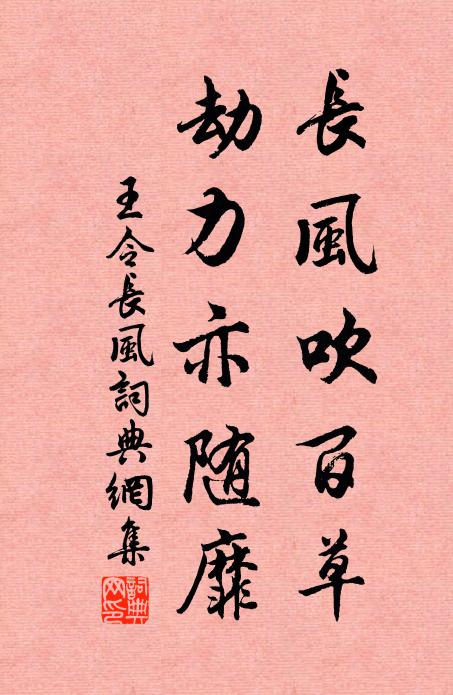 長風吹百草
劫力亦随靡
王令長風詞典網集
詞典网印